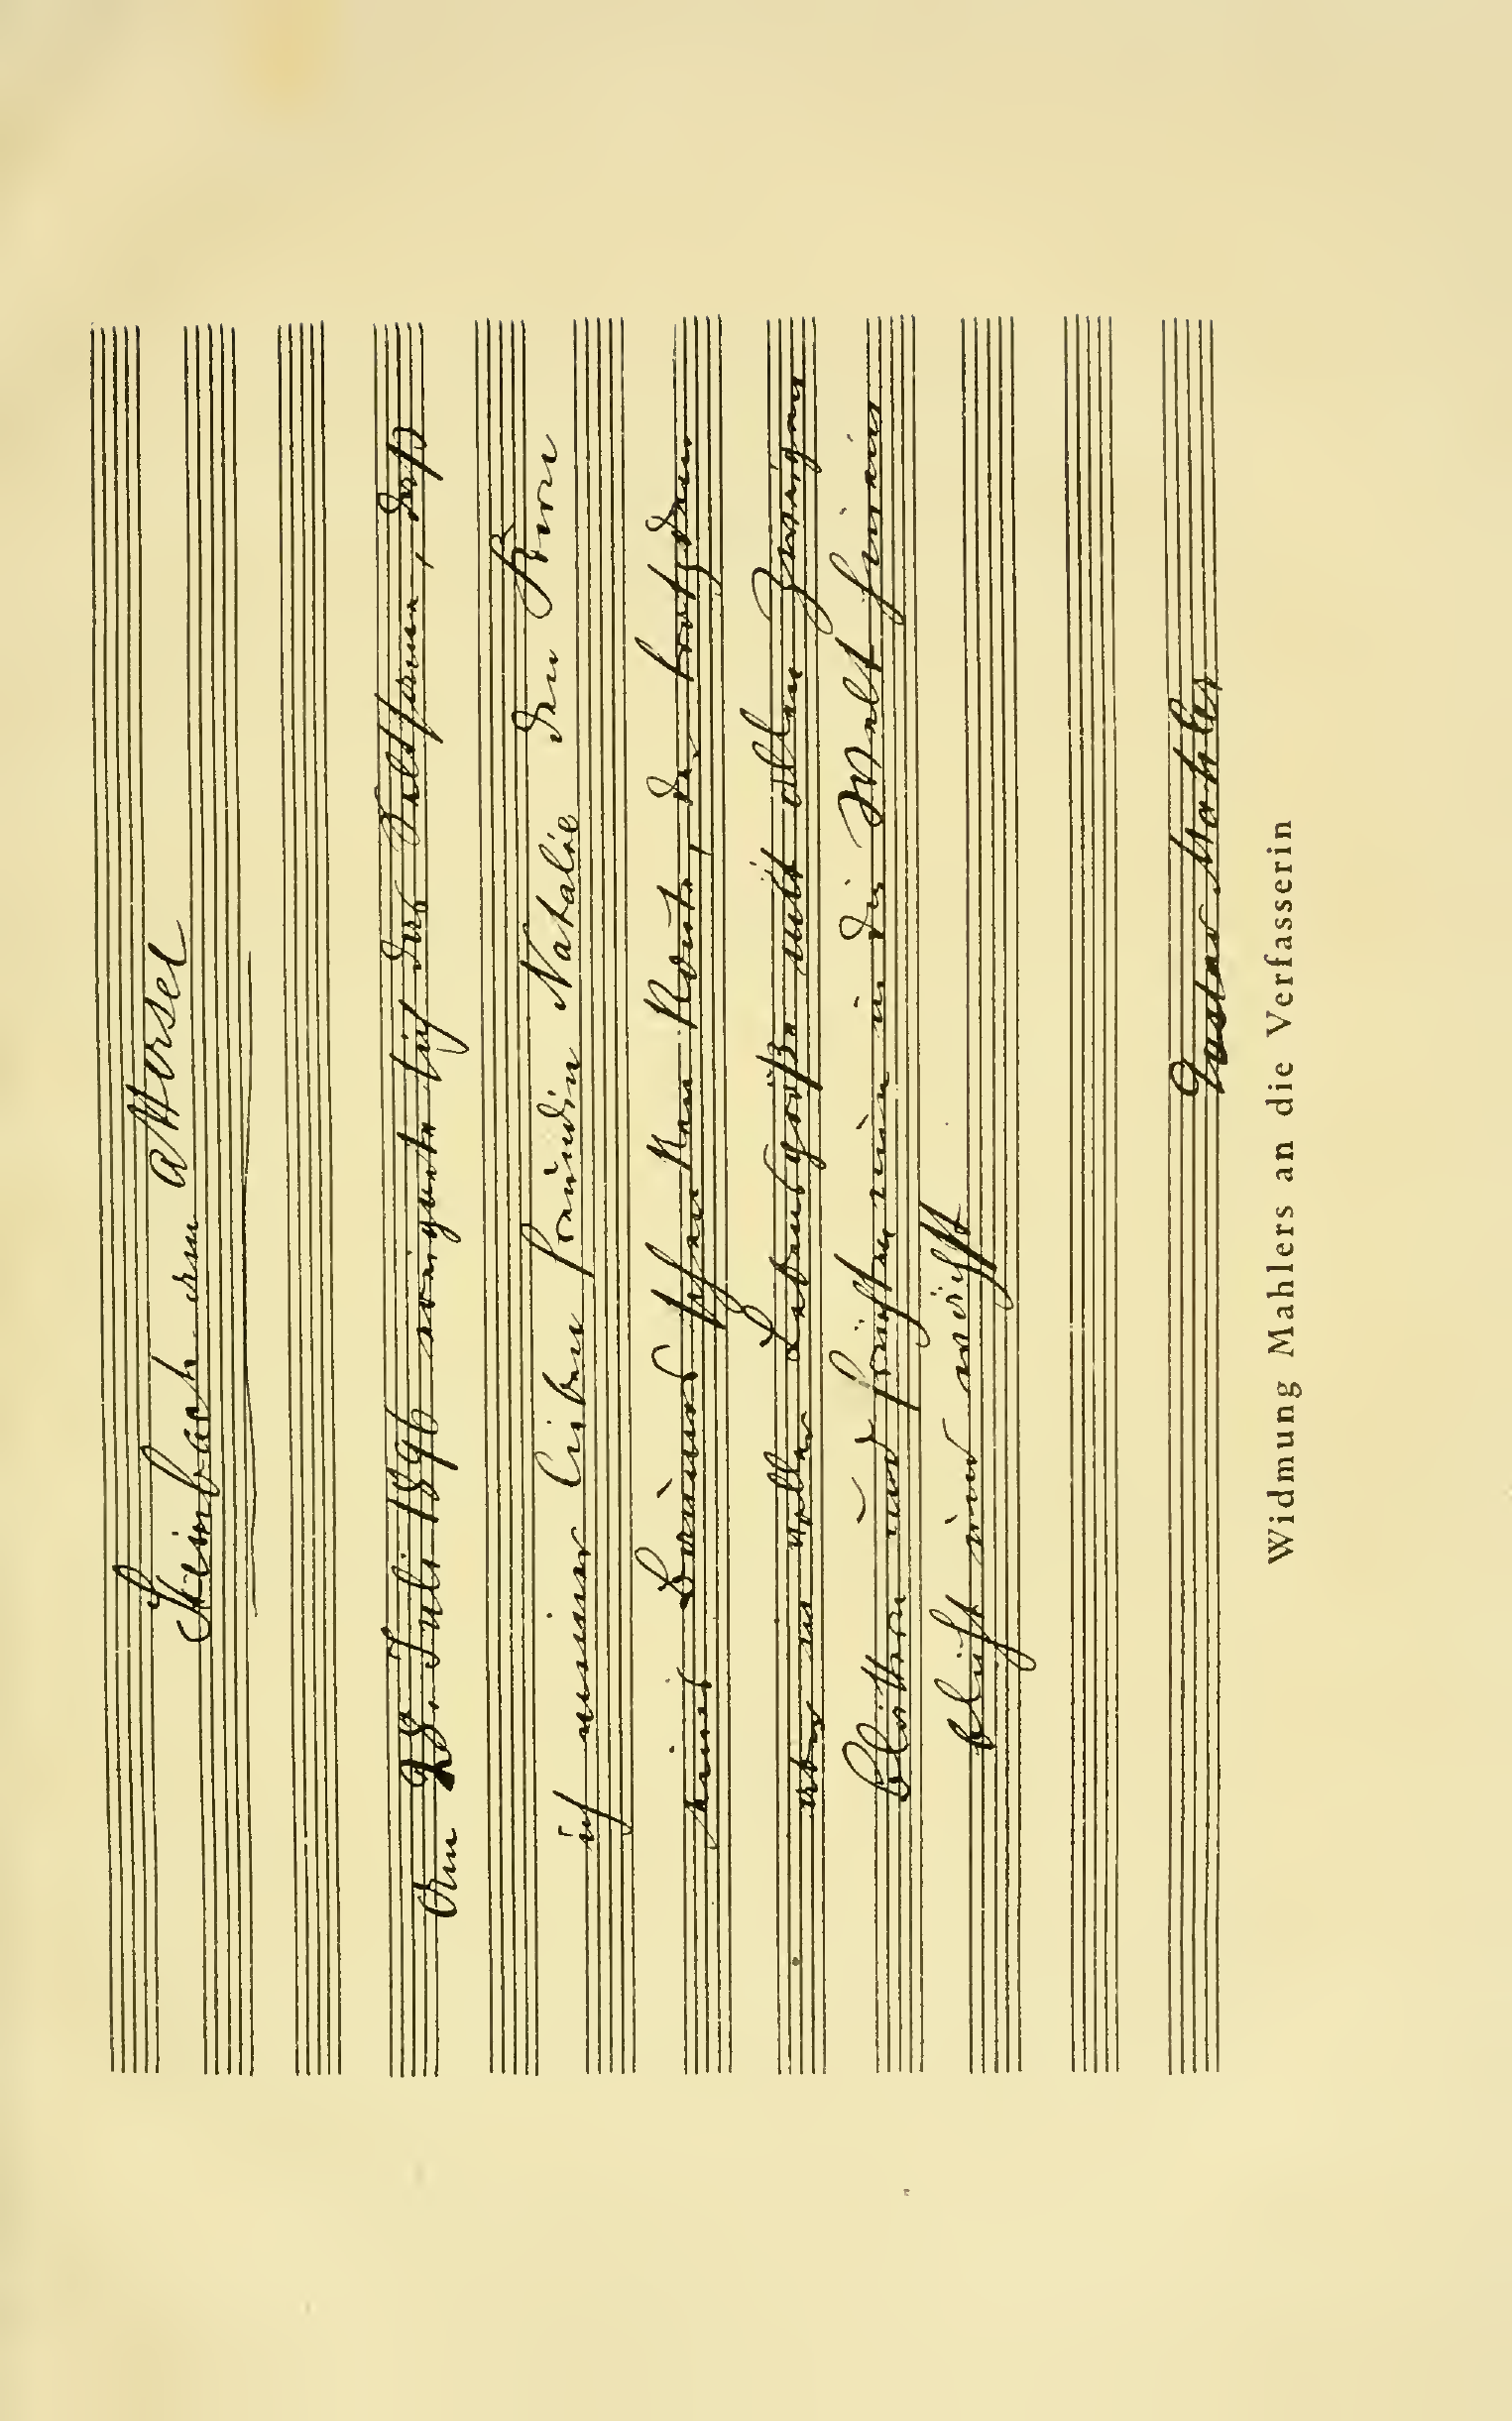 Steinbach am Attersee
Am 28. Juli 1896 ereignete sich das Seltsame, daß
ich meiner lieben Freundin Natalie den Kern
eines Baumes schenken konnte, der trotzdem
aber in voller Lebensgröße mit allen Zweigen
Blättern und Früchten nun in die Welt hinein
blüht und wächst
Gustav Mahler
Widmung Mahlers an die Verfasserin